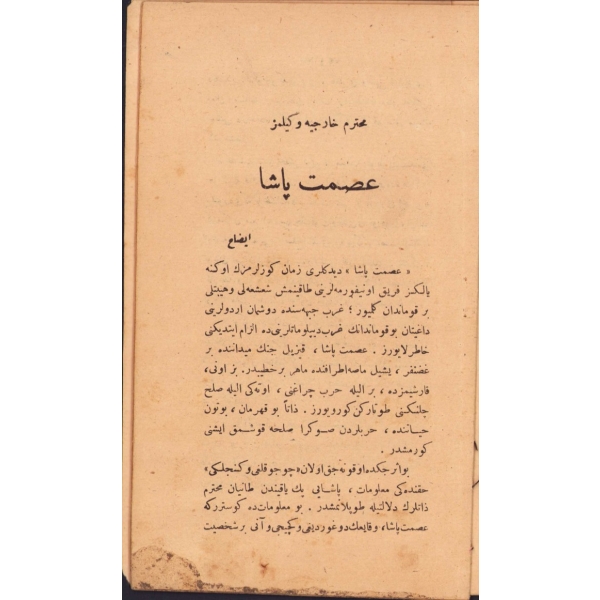 محترم خارجیه وکیلمز
عصمت پاشا
ایضاح
« عصمت پاشا » دیدکلری زمان کوزلرمزك اوکنه
یالکز فریق اونیفورمه‌لرینی طاقینمش شعشعه‌لی وهیبتلی
بر قوماندان کلمیور ؛ غرب جبهه‌سنده دوشمان اردولرینی
داغیتان بوقوماندانك غرب دیپلوماتلرینی‌ده الزام ایتدیکنی
خاطرلایورز . عصمت پاشا ، قیزیل جنك میداننده بر
غضنفر ، یشیل ماصه اطرافنده ماهر برخطیبدر . بز اونی ،
قارشیمزده ، بر الیله حرب چراغنی ، اوته‌کی الیله صلح
چلنکنی طوتارکن کورویورز . ذاتاً بو قهرمان ، بوتون
حیاتنده ، حربلردن صوکرا صلحه قوشمق ایشنی
کورمشدر .
بواثرجکده اوقونه‌جق اولان «چوجوقلغی وکنجلکی»
حقنده‌کی معلومات ، پاشایی پك یاقیندن طانیان محترم
ذاتلرك دلالتیله طوپلانمشدر . بو معلومات‌ده کوستررکه
عصمت پاشا، وقایعك دوغوردیغی وکچیجی وآنی برشخصیت